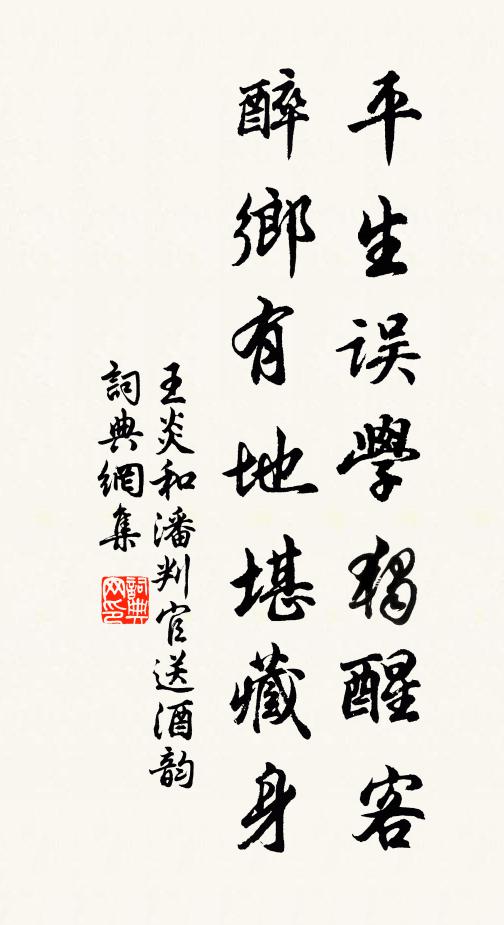 平生误學獨醒客
醉鄉有地堪藏身
王炎和潘判官送酒韵
詞典網集
詞典
网印